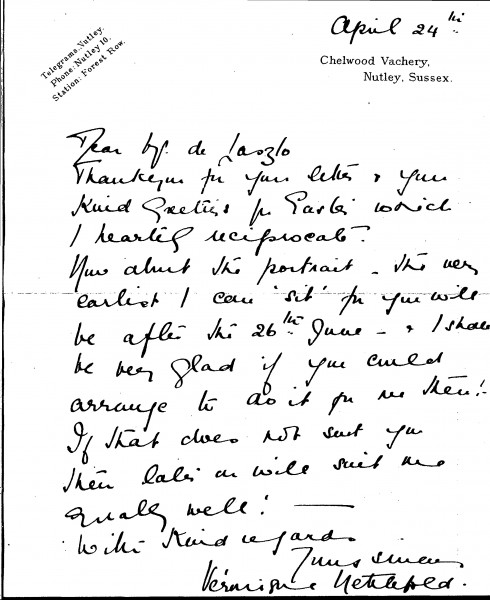 April 24th
Telegrams, Nutley.
Phone: Nutley 10.
Station: Forest Row.
Chelwood Vachery,
Nutley, Sussex.
Dear Mr. de Laszlo
Thank you for your letter & your
Kind Greetings for Easter which
I heartily reciprocate.
Now about the portrait - the very
earliest I can 'sit' for you will
be after the 26th June - & I shall
be very glad if you could
arrange to do it for me then!
If that does not suit you
then later on will suit me
equally well! —
With Kind regards
Yours sincerely
Véronique Nettlefold.